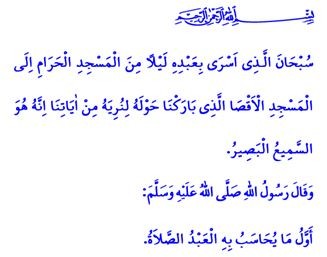 بِسْمِ اللهِ الرَّحْمٰنِ الرَّحِيمِ
سُبْحَانَ الَّذِى اَسْرَى بِعَبْدِهِ لَيْلًا مِنَ الْمَسْجِدِ الْحَرَامِ اِلَى
الْمَسْجِدِ الْاَقْصَا الَّذِى بَارَكْنَا حَوْلَهُ لِنُرِيَهُ مِنْ اٰيَاتِنَا اِنَّهُ هُوَ
السَّمِيعُ الْبَصِيرُ.
وَقَالَ رَسُولُ اللهِ صَلَّى اللهُ عَلَيْهِ وَسَلَّمَ:
أَوَّلُ مَا يُحَاسَبُ بِهِ الْعَبْدُ الصَّلَاةُ.